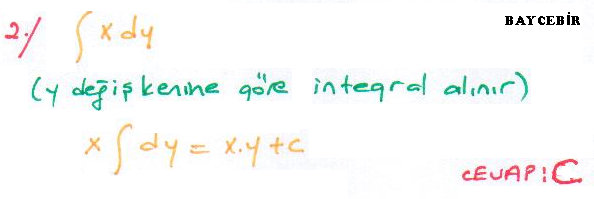 2./ ∫ x dy
BAYCEBİR
(y değişkenine göre integral alınır)
x ∫ dy = x.y + c
CEVAP: C